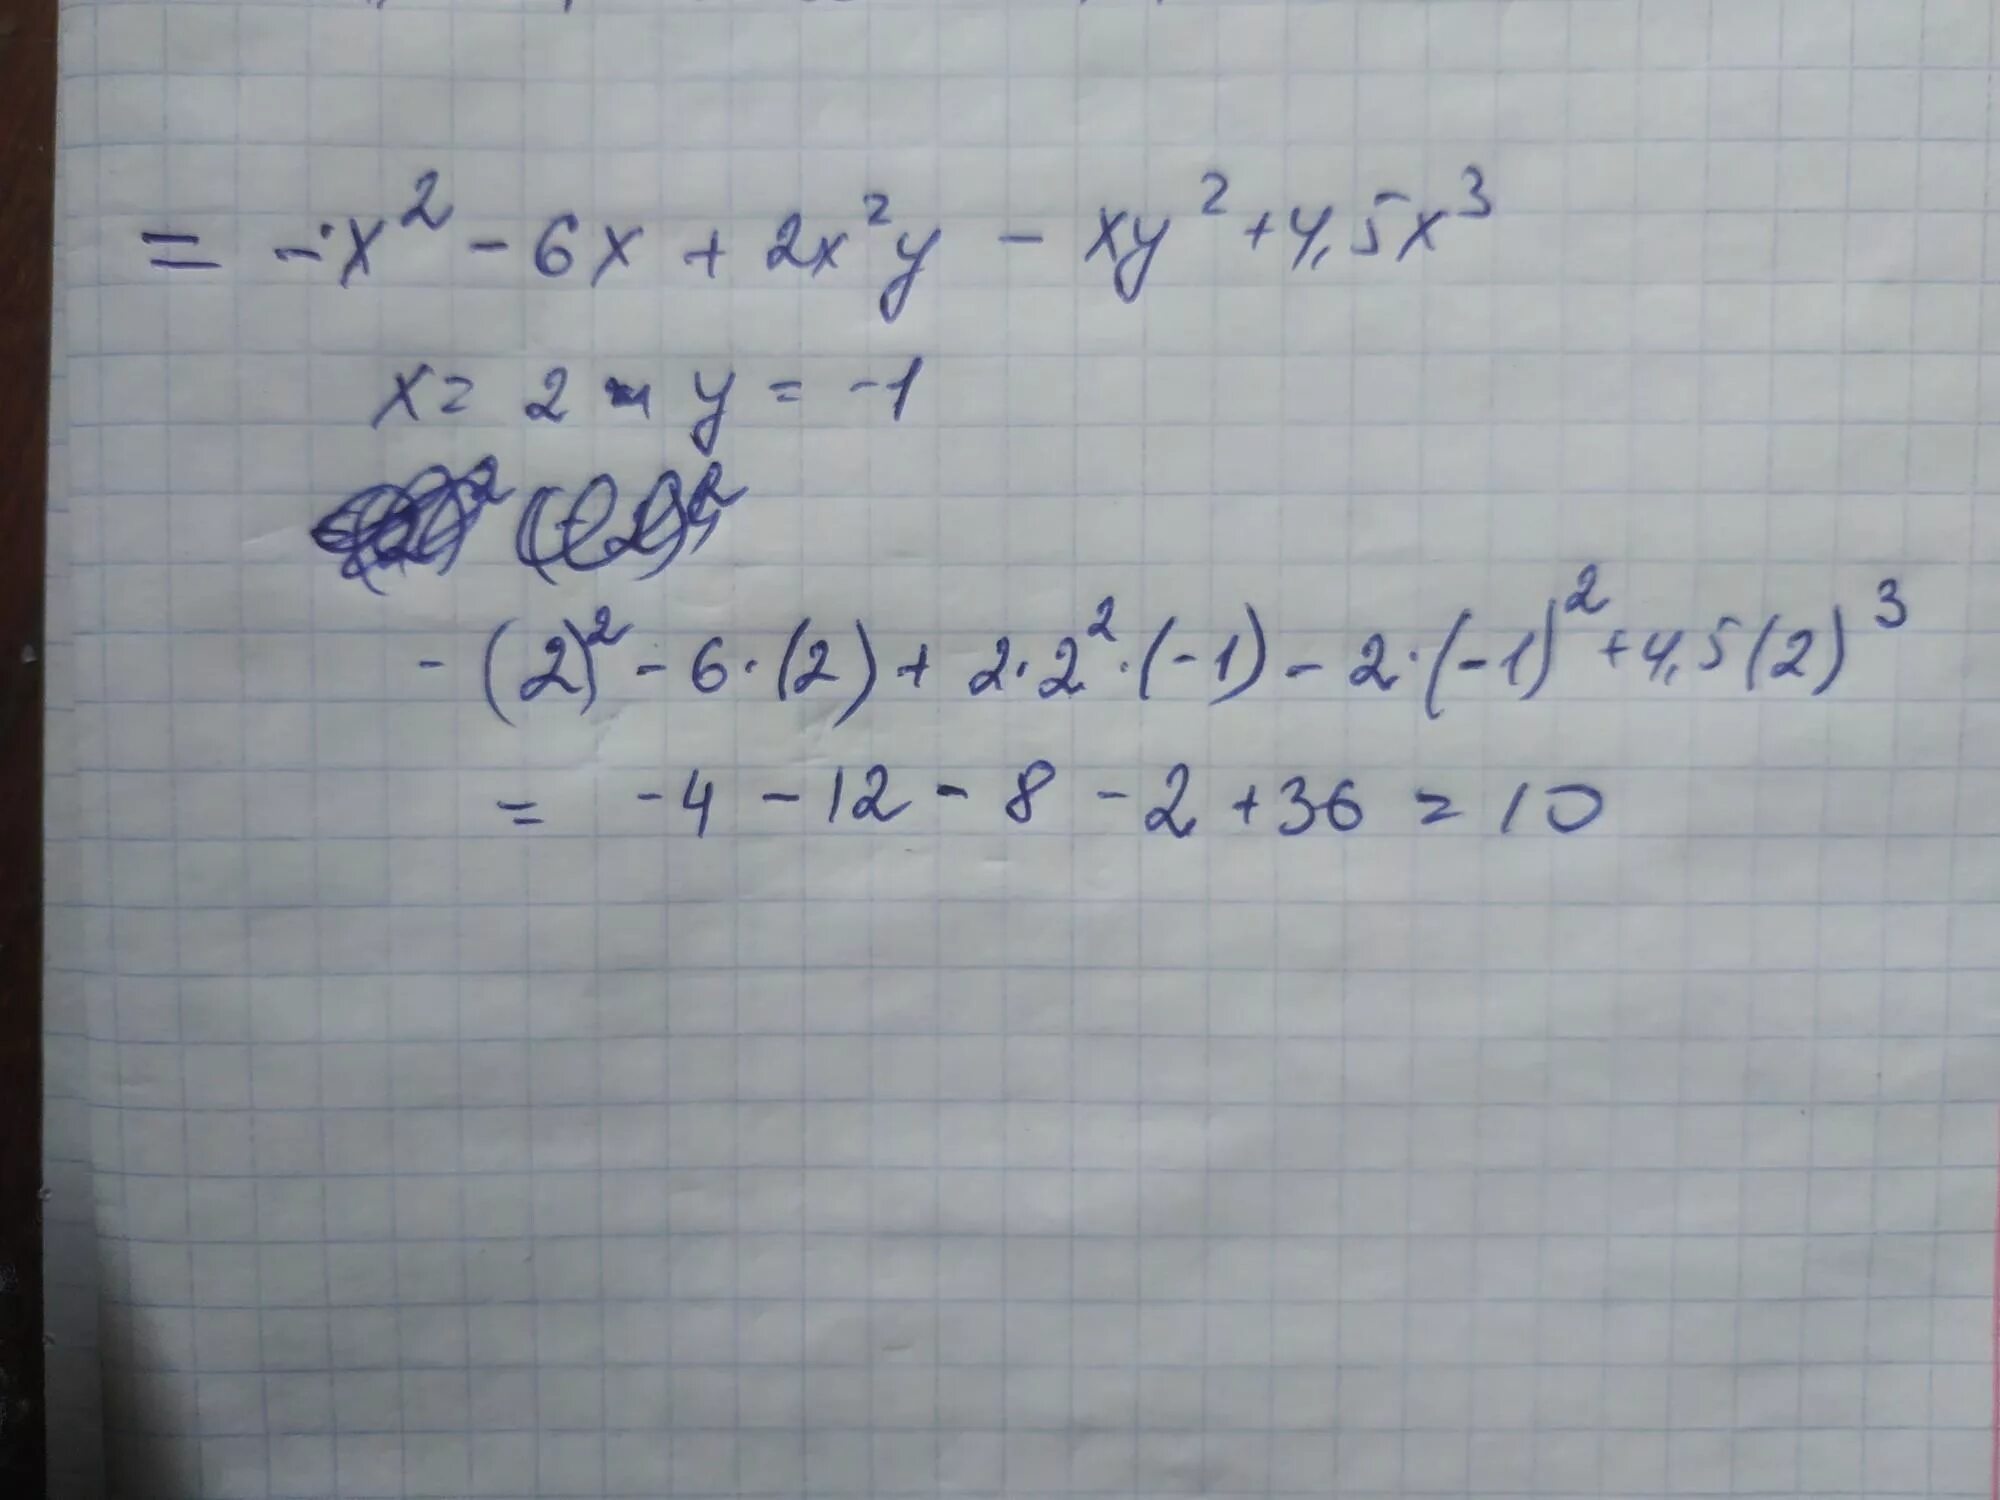 = -x² - 6x + 2x²y - xy² + 4,5x³
x = 2 и y = -1
-(2)² - 6·(2) + 2·2²·(-1) - 2·(-1)² + 4,5(2)³
= -4 - 12 - 8 - 2 + 36 = 10